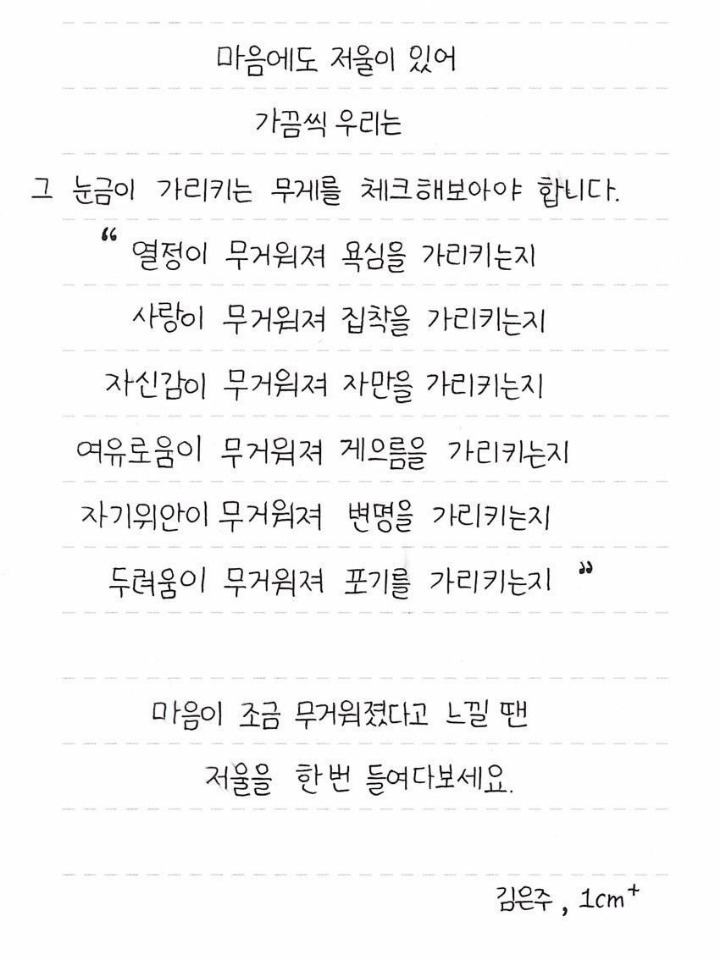 마음에도 저울이 있어
가끔씩 우리는
그 눈금이 가리키는 무게를 체크해보아야 합니다.
“ 열정이 무거워져 욕심을 가리키는지
사랑이 무거워져 집착을 가리키는지
자신감이 무거워져 자만을 가리키는지
여유로움이 무거워져 게으름을 가리키는지
자기위안이 무거워져 변명을 가리키는지
두려움이 무거워져 포기를 가리키는지 ”
마음이 조금 무거워졌다고 느낄 땐
저울을 한번 들여다보세요.
김은주, 1cm⁺